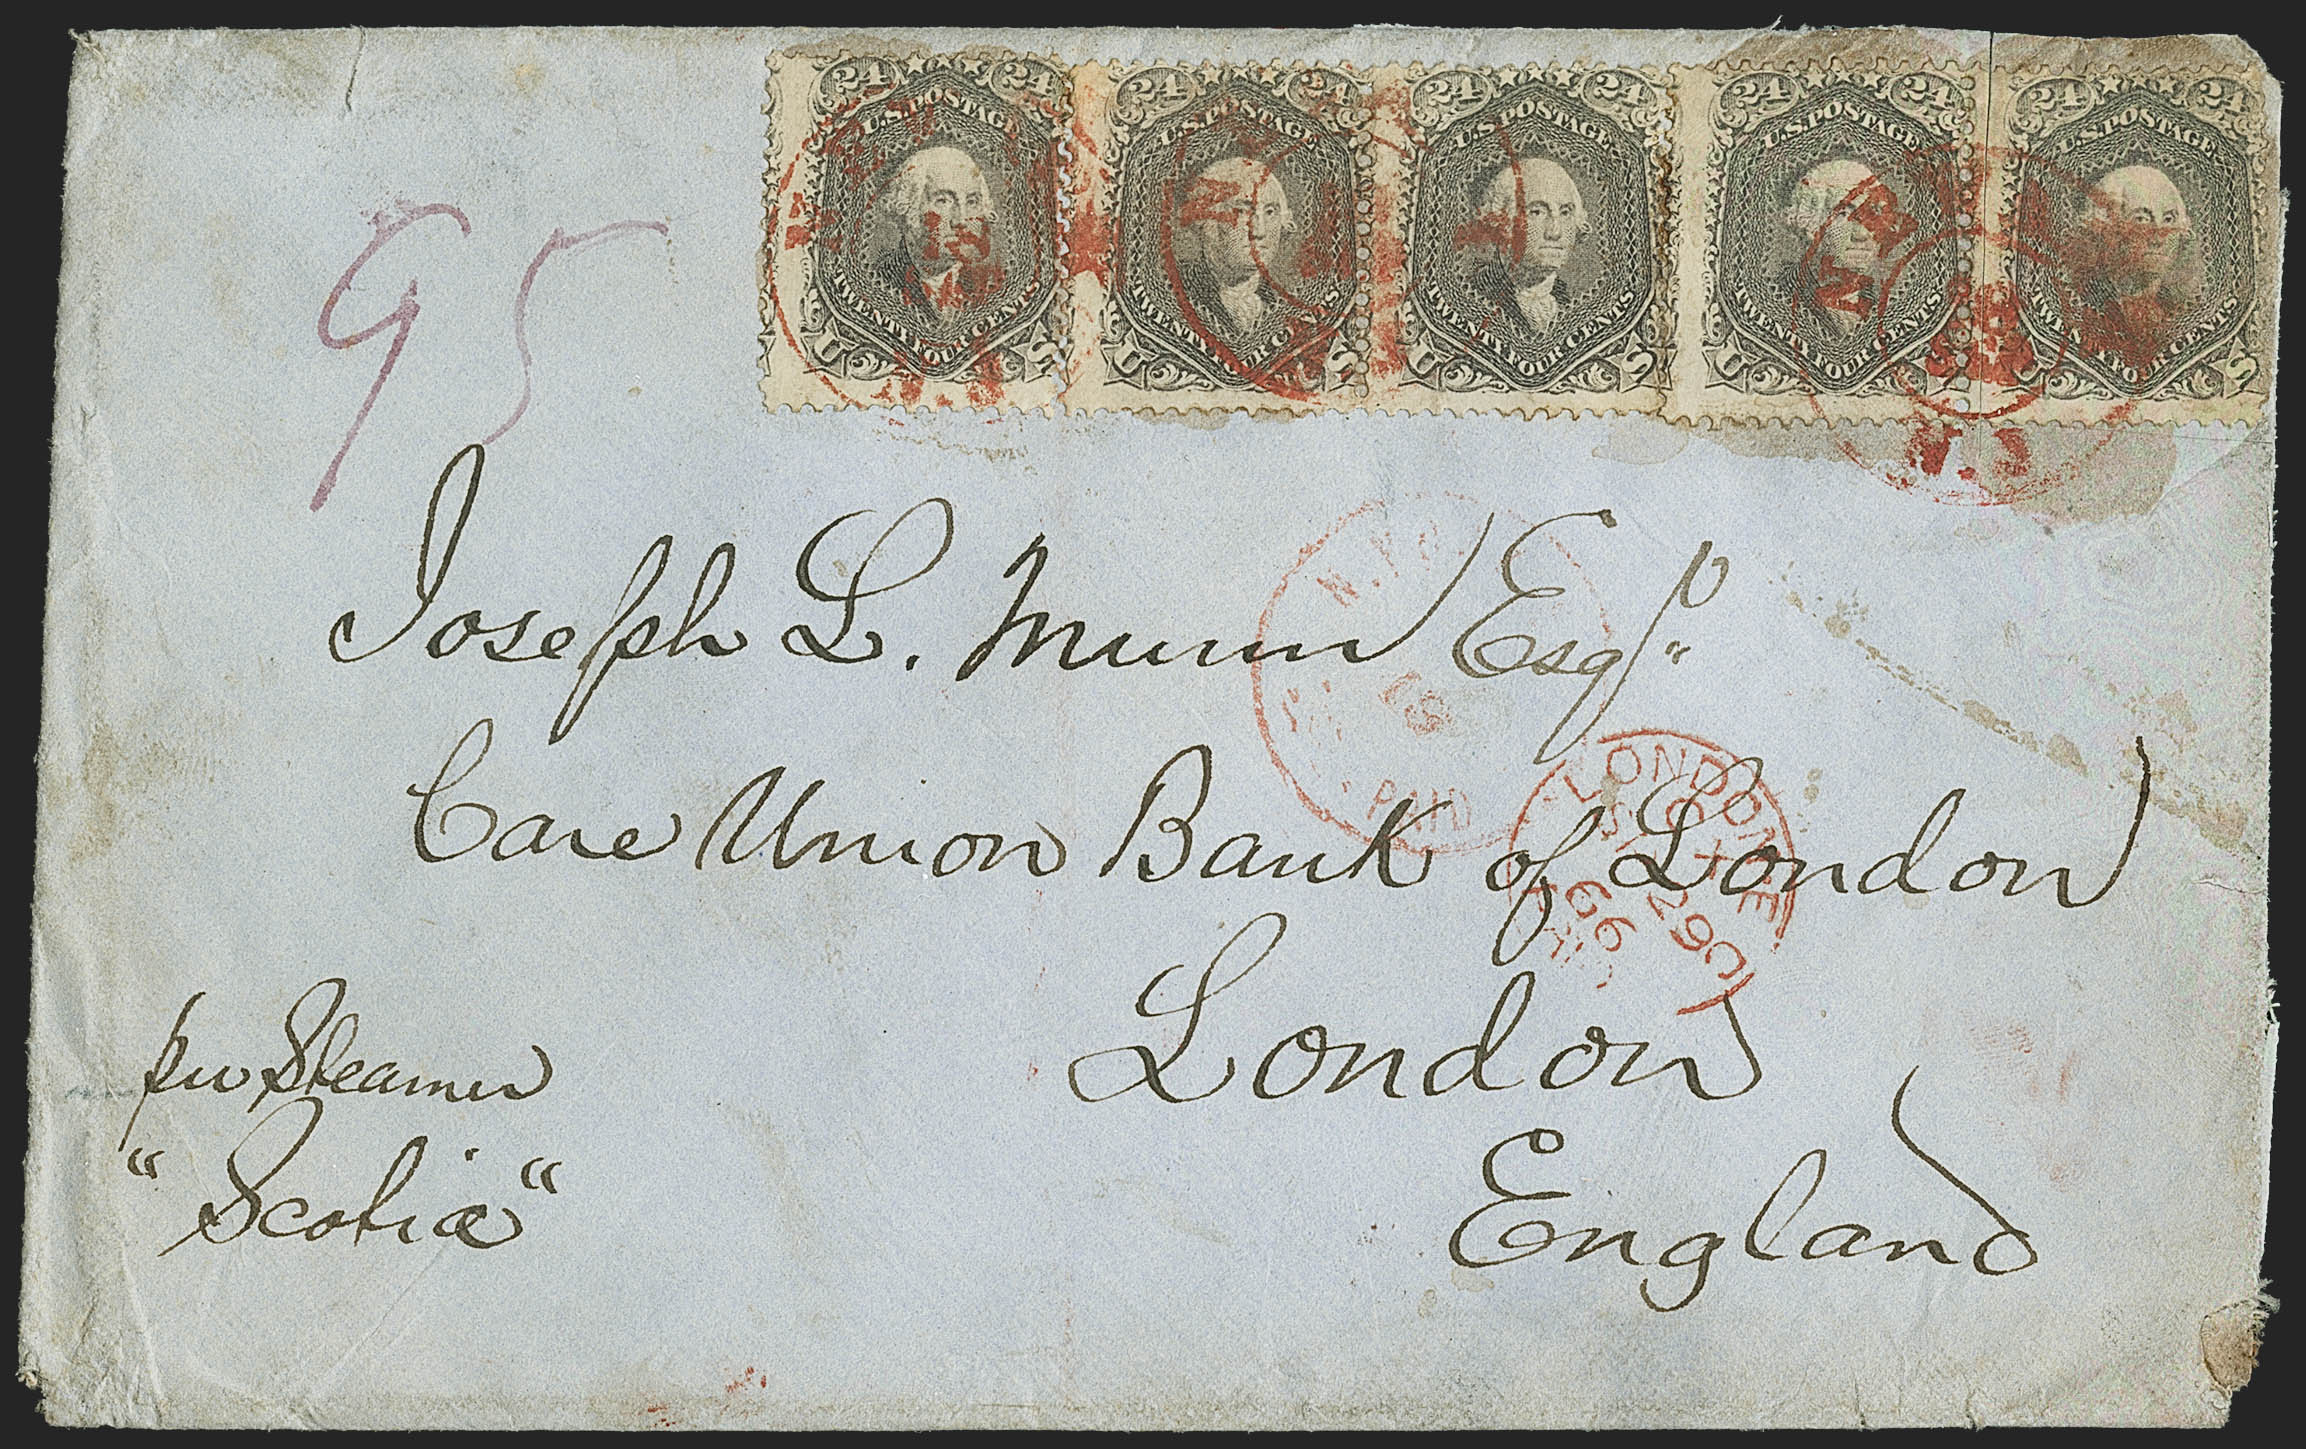 24 24 24 24 24 24 24 24 24 24
U.S. POSTAGE U.S. POSTAGE U.S. POSTAGE U.S. POSTAGE U.S. POSTAGE
TWENTY FOUR CENTS TWENTY FOUR CENTS TWENTY FOUR CENTS TWENTY FOUR CENTS TWENTY FOUR CENTS
U S U S U S U S U S
95
Joseph L. Munn Esqr
Care Union Bank of London
London
England
per Steamer
"Scotia"
PAID
LONDON E
29
66
PAID